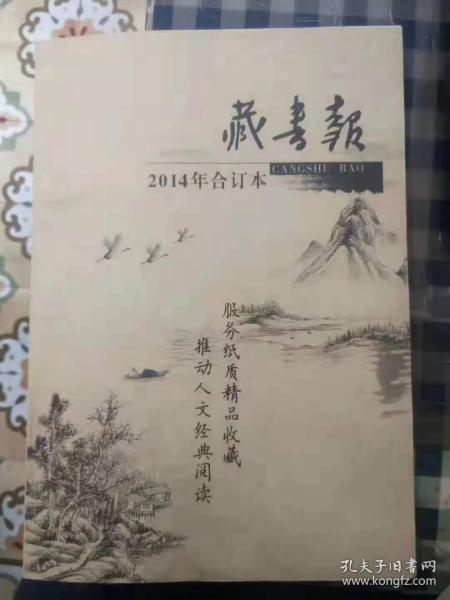 藏书報
CANGSHU BAO
2014年合订本
服务纸质精品收藏
推动人文经典阅读
孔夫子旧书网
www.kongfz.com